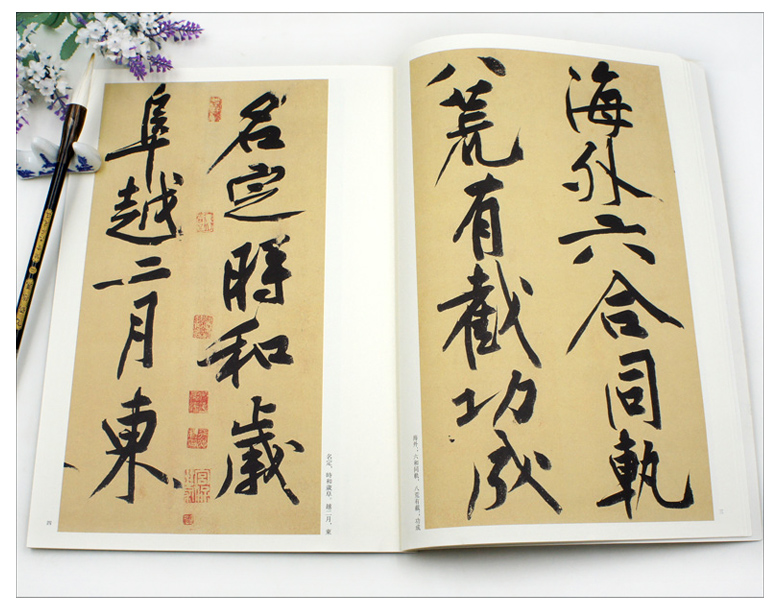 海外六合同軌
八荒有截功成
海外，六合同軌，八荒有截，功成
名定時和歲
阜越二月東
名定，時和歲阜，越二月，東